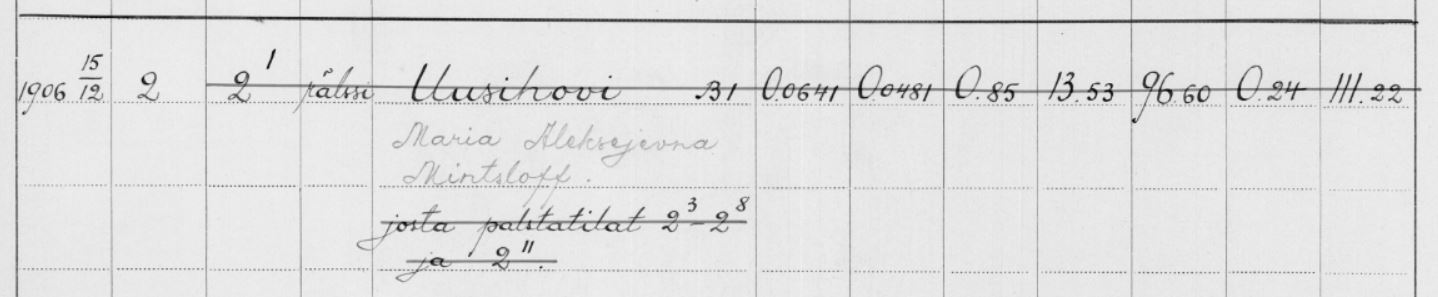 1906 15/12 2 2¹ pälssi Uusihovi 31 0.0641 0.0481 0.85 13.53 96.60 0.24 111.22
Maria Aleksejevna
Mintsloff.
josta palstatilat 2³-2⁸
ja 2¹¹.